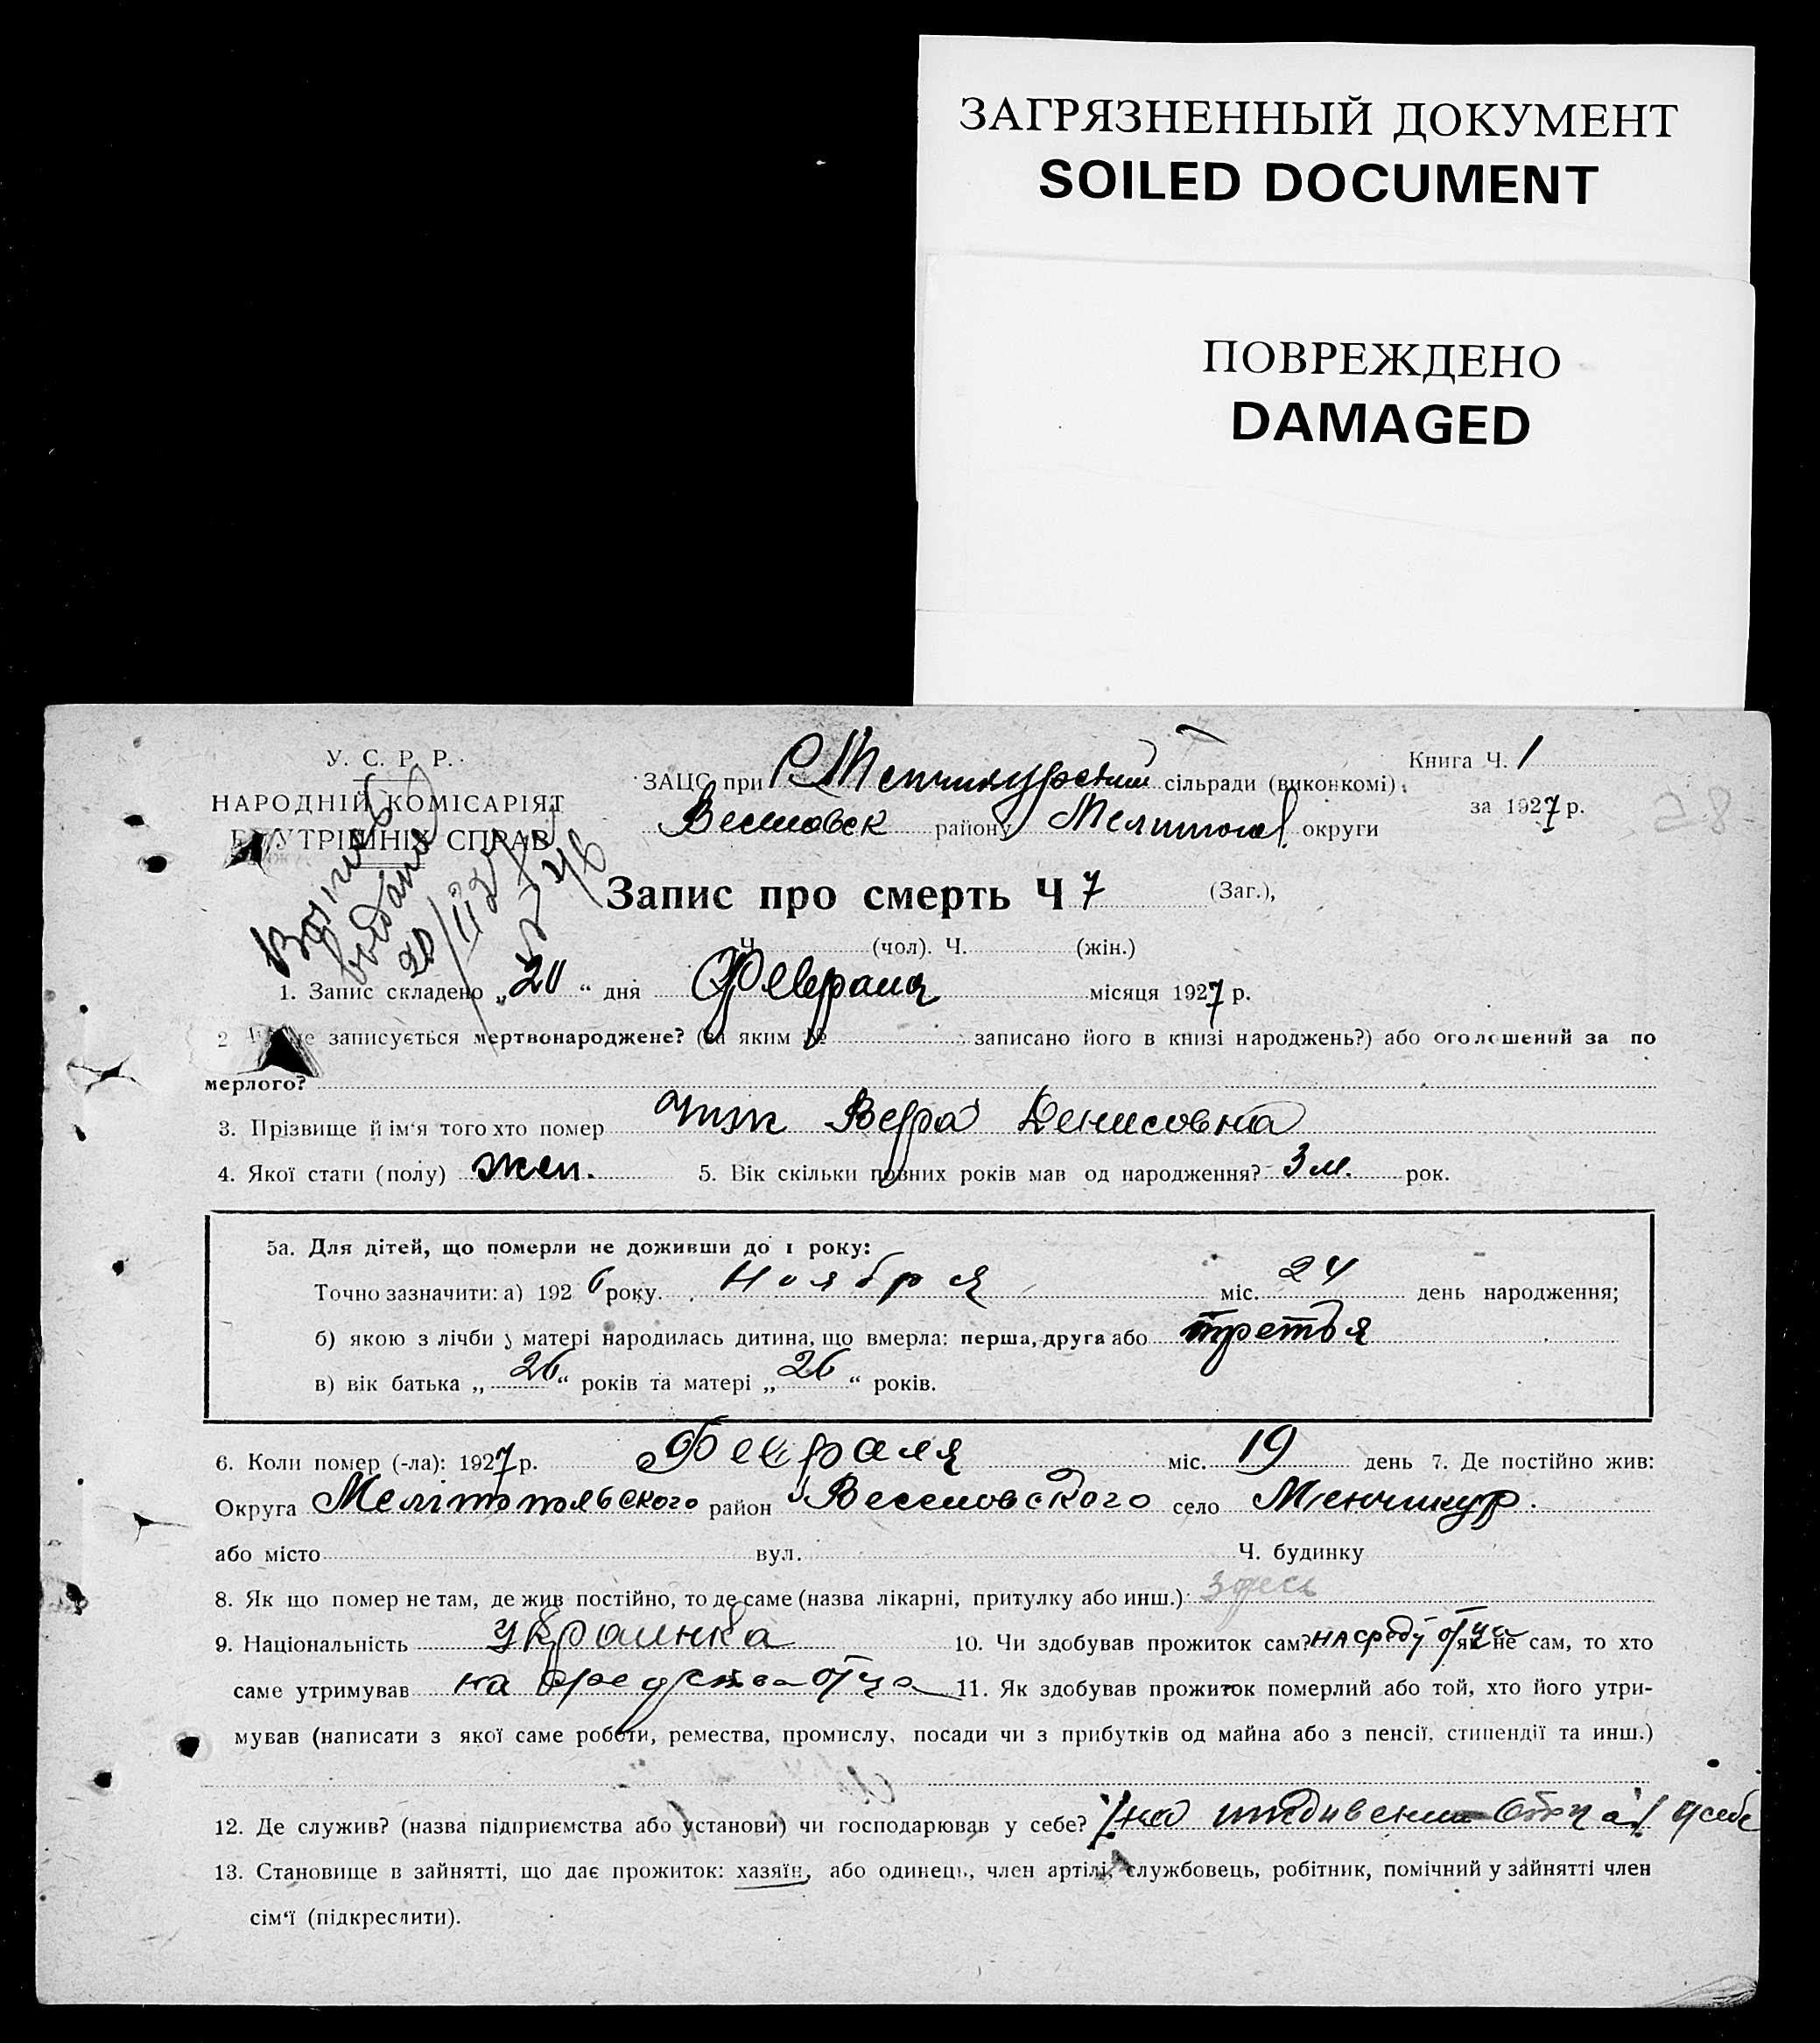 ЗАГРЯЗНЕННЫЙ ДОКУМЕНТ
SOILED DOCUMENT
ПОВРЕЖДЕНО
DAMAGED
У. С. Р. Р.
НАРОДНІЙ КОМІСАРІЯТ
ВНУТРІШНІХ СПРАВ
ЗАЦС при С Менчикурский сільради (виконкомі)
Книга Ч. 1
Веселовск району Мелитопол. округи
за 1927 р.
58
Запис про смерть Ч 7 (Заг.),
Ч. (чол). Ч. (жін.)
1. Запис складено „20“ дня Февраля місяця 1927 р.
2 записується мертвонароджене? (за яким № записано його в книзі народжень?) або оголошений за по
мерлого?
3. Прізвище й ім‘я того хто помер Чиж Вера Денисовна
4. Якої стати (полу) жен. 5. Вік скільки повних років мав од народження? 3 м. рок.
5а. Для дітей, що померли не доживши до 1 року:
Точно зазначити: а) 1926 року. Ноября міс. 24 день народження;
б) якою з лічби у матері народилась дитина, що вмерла: перша, друга або третья
в) вік батька „26“ років та матері „26“ років.
6. Коли помер (-ла): 1927 р. Февраля міс. 19 день 7. Де постійно жив:
Округа Мелітопольського район Веселовского село Менчикур.
або місто вул. Ч. будинку
8. Як що помер не там, де жив постійно, то де саме (назва лікарні, притулку або инш.): здесь
9. Національність украинка 10. Чи здобував прожиток сам? на сред отца як не сам, то хто
саме утримував на средства отца 11. Як здобував прожиток померлий або той, хто його утри-
мував (написати з якої саме роботи, ремества, промислу, посади чи з прибутків од майна або з пенсії, стипендії та инш.)
12. Де служив? (назва підприємства або установи) чи господарював у себе? на иждивении отца у себе
13. Становище в зайнятті, що дає прожиток: хазяїн, або одинець, член артілі, службовець, робітник, помічний у зайнятті член
сім‘ї (підкреслити).